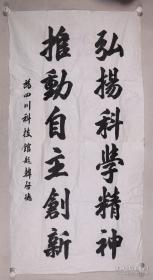 弘揚科學精神
推動自主創新
為四川科技館題 韓啓德